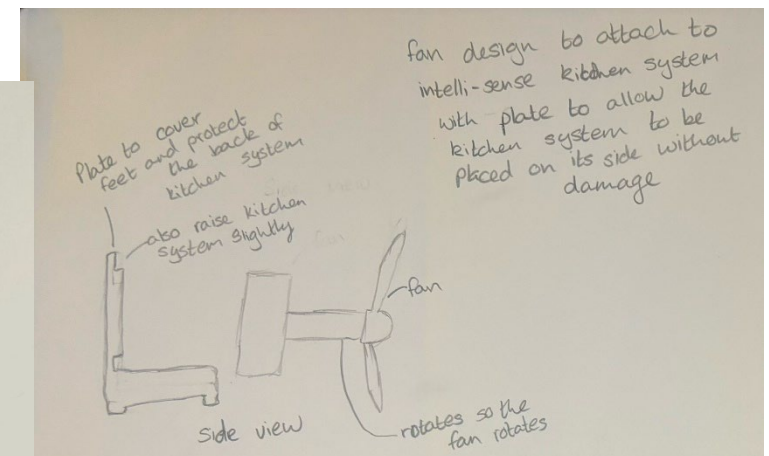 fan design to attach to
intelli-sense kitchen system
with plate to allow the
kitchen system to be
placed on its side without
damage
Plate to cover
feet and protect
the back of
kitchen system
also raise kitchen
system slightly
fan
Side view
rotates so the
fan rotates